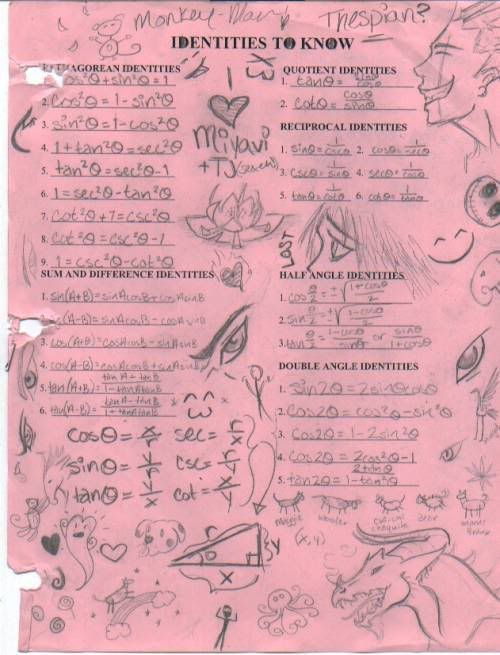 Monkey-Man Thespian?
IDENTITIES TO KNOW
PYTHAGOREAN IDENTITIES
1. cos²θ+sin²θ=1
2. cos²θ=1-sin²θ
3. sin²θ=1-cos²θ
4. 1+tan²θ=sec²θ
5. tan²θ=sec²θ-1
6. 1=sec²θ-tan²θ
7. cot²θ+1=csc²θ
8. cot²θ=csc²θ-1
9. 1=csc²θ-cot²θ
I
Miyavi
+ TJ
QUOTIENT IDENTITIES
1. tanθ= sinθ/cosθ
2. cotθ= cosθ/sinθ
RECIPROCAL IDENTITIES
1. sinθ= 1/cscθ 2. cosθ= 1/secθ
3. cscθ= 1/sinθ 4. secθ= 1/cosθ
5. tanθ= 1/cotθ 6. cotθ= 1/tanθ
LOST
SUM AND DIFFERENCE IDENTITIES
1. sin(A+B)=sinAcosB+cosAsinB
sin(A-B)=sinAcosB-cosAsinB
3. cos(A+B)=cosAcosB-sinAsinB
4. cos(A-B)=cosAcosB+sinAsinB
5. tan(A+B)= tanA+tanB/1-tanAtanB
6. tan(A-B)= tanA-tanB/1+tanAtanB
HALF ANGLE IDENTITIES
1. cos θ/2 = ±√1+cosθ/2
2. sin θ/2 = ±√1-cosθ/2
3. tan θ/2 = 1-cosθ/sinθ or sinθ/1+cosθ
DOUBLE ANGLE IDENTITIES
1. sin2θ=2sinθcosθ
2. cos2θ=cos²θ-sin²θ
3. cos2θ=1-2sin²θ
4. cos2θ=2cos²θ-1
5. tan2θ= 2tanθ/1-tan²θ
cosθ= x/r sec= r/x
sinθ= y/r csc= r/y
tanθ= y/x cot= x/y
r
y
x
(x,y)